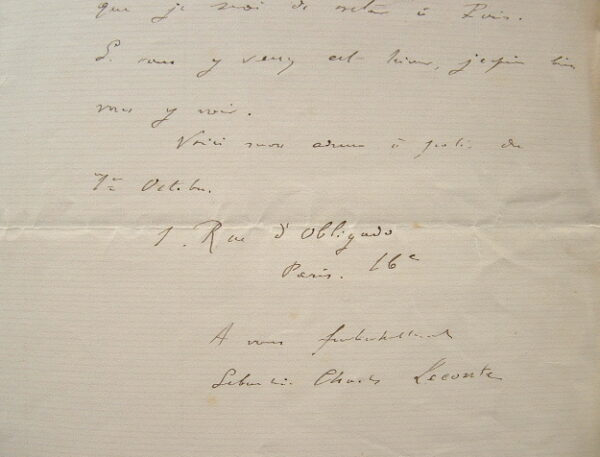 que je sois de retour à Paris.
Si vous y venez cet hiver, j'espère bien
vous y voir.
Voici mon adresse à partir du
1er Octobre.
1. Rue d'Obligado
Paris. 16e
A vous
Sébastien Charles Leconte